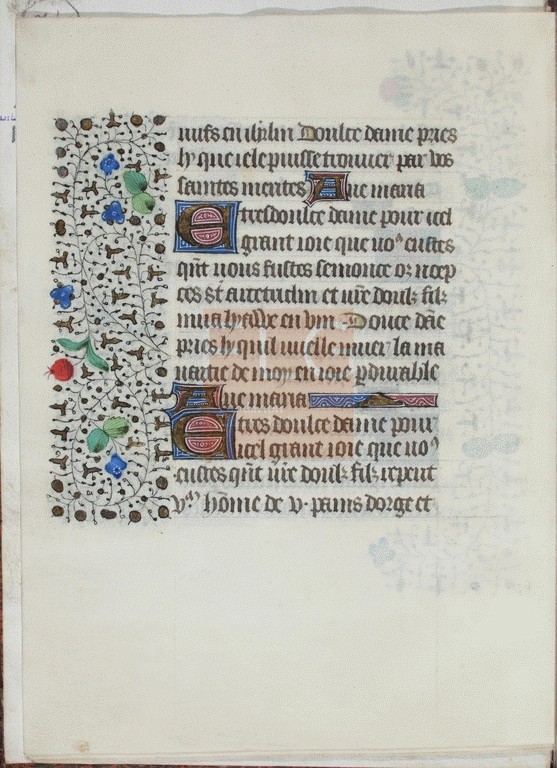 nuefs en ih'rlm Doulce dame pries
ly que ie le puisse trouuer par vos
saintes merites Aue maria
E tresdoulce dame pour icel
grant ioie que vo9 eustes
qñt nous fustes semonce
ces st et vr̄e doulz filz
mua en vin Douce dāe
pries ly quil vuelle muer la ma
uaitie de moy en ioie pdurable
Aue maria
E tres doulce dame pour
icel grant ioie que vo9
eustes qñt vr̄e doulz filz reput
v. hōme de v. pains dorge et